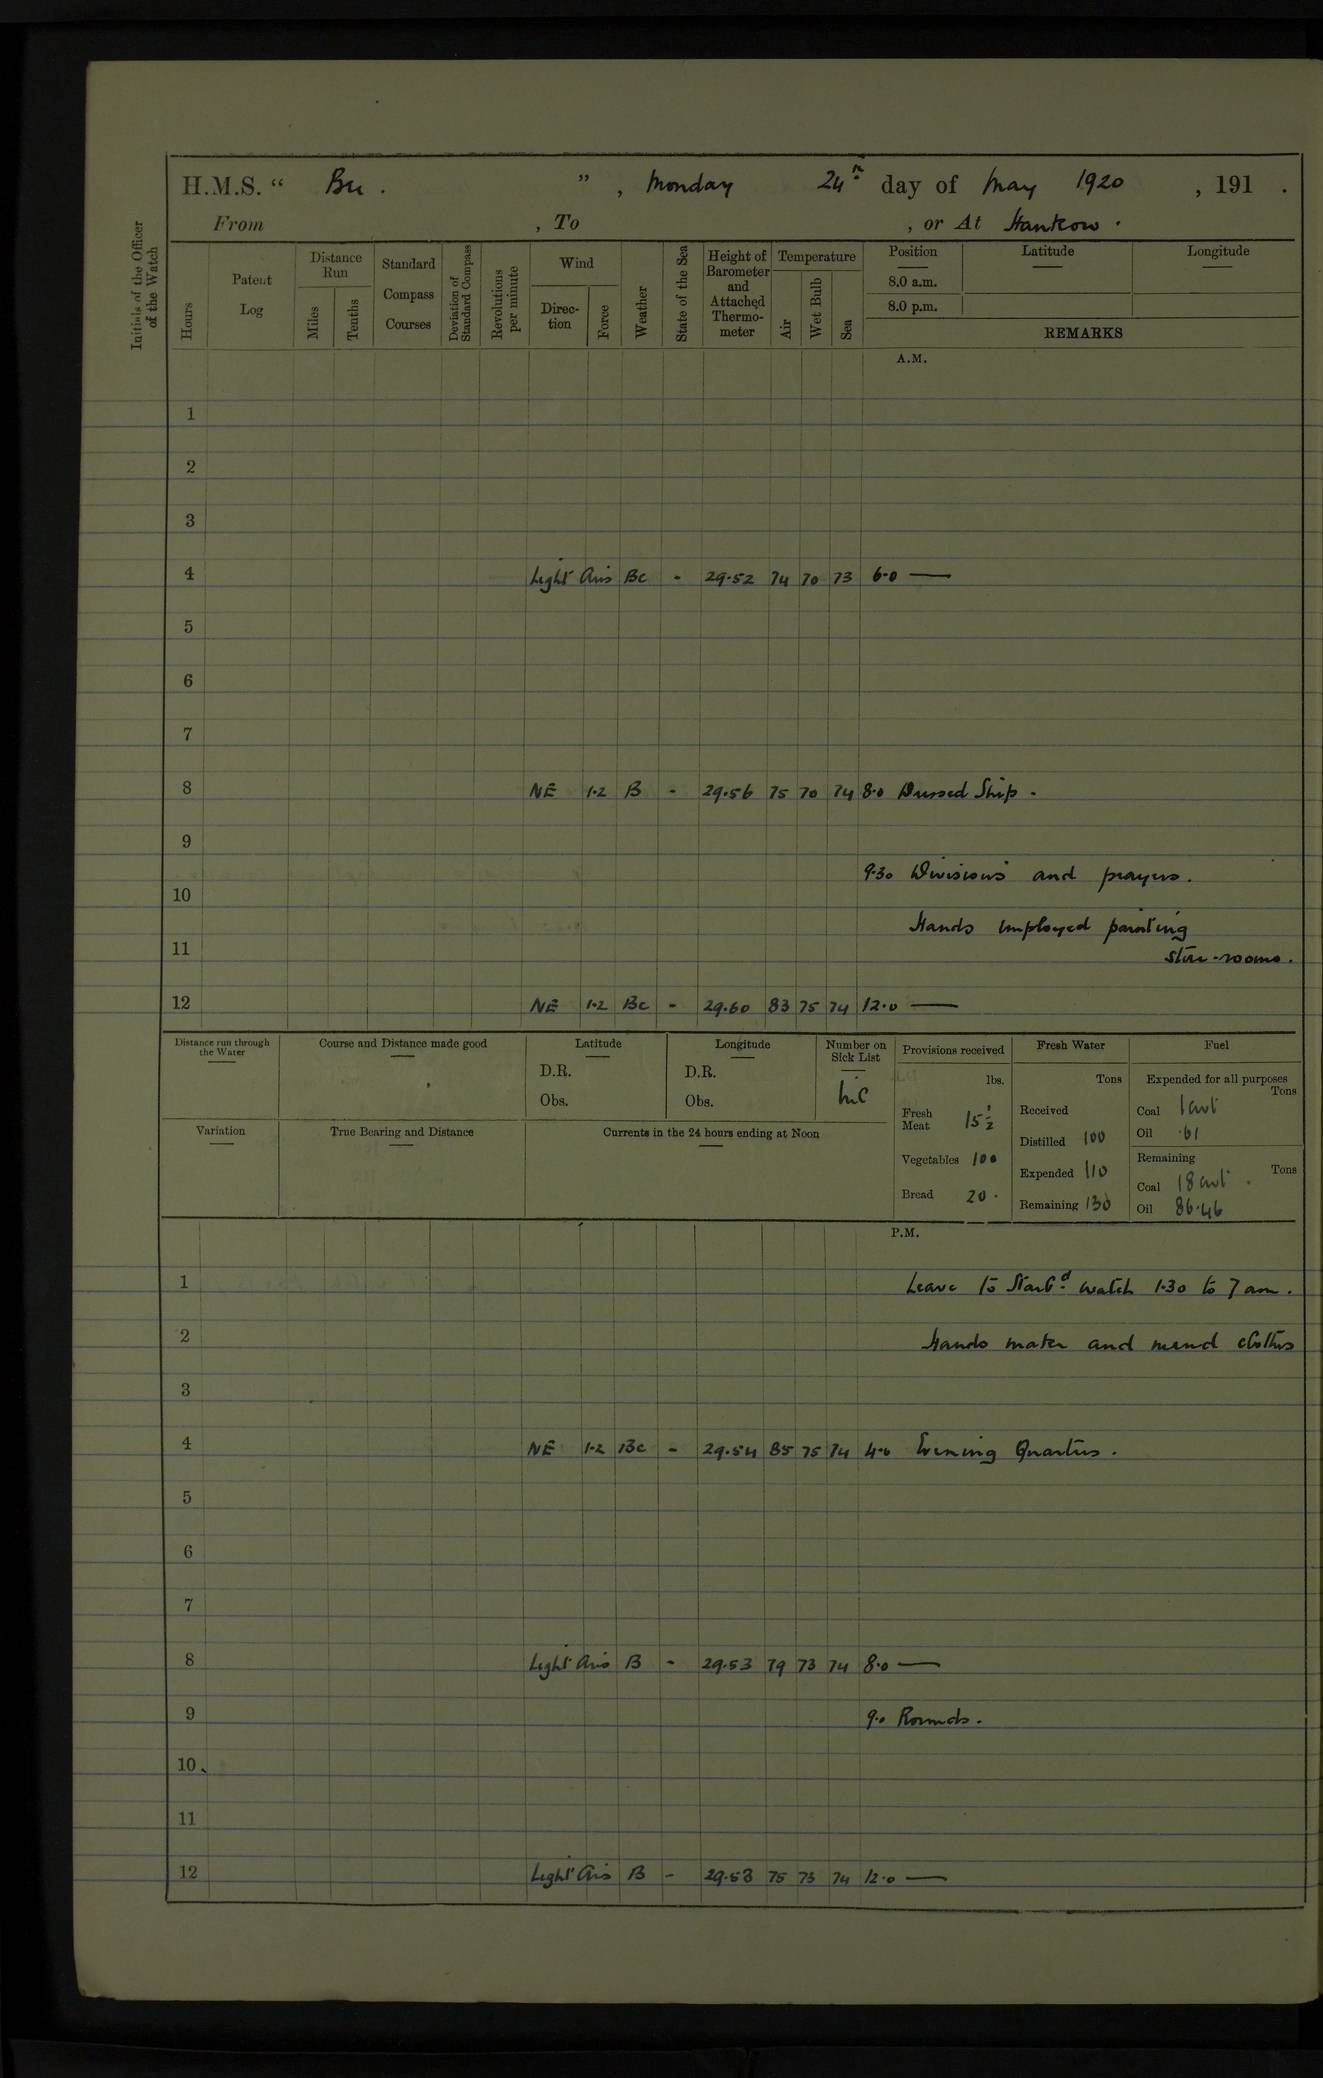 H.M.S. “ Bee . ” , Monday 24th day of May 1920 , 191 .
From , To , or At Hankow .
Initials of the Officer of the Watch
Hours
Patent Log
Distance Run
Miles
Tenths
Standard Compass Courses
Deviation of Standard Compass
Revolutions per minute
Wind
Direc- tion
Force
Weather
State of the Sea
Height of Barometer and Attached Thermo- meter
Temperature
Air
Wet Bulb
Sea
Position Latitude Longitude
8.0 a.m.
8.0 p.m.
REMARKS
A.M.
1
2
3
4 Light Airs Bc - 29.52 74 70 73 6.0 —
5
6
7
8 NE 1.2 B - 29.56 75 70 74 8.0 Dressed Ship .
9
9.30 Divisions and prayers .
10
Hands employed painting
11
store-rooms .
12 NE 1.2 Bc - 29.60 83 75 74 12.0 —
Distance run through the Water
Course and Distance made good
Latitude
D.R.
Obs.
Longitude
D.R.
Obs.
Number on Sick List
nil
Variation
True Bearing and Distance
Currents in the 24 hours ending at Noon
Provisions received
lbs.
Fresh Meat 15½
Vegetables 100
Bread 20 .
Fresh Water
Tons
Received
Distilled 100
Expended 110
Remaining 130
Fuel
Expended for all purposes
Tons
Coal 1 cwt
Oil .61
Remaining
Tons
Coal 18 cwt .
Oil 86.46
P.M.
1 Leave to Starbd watch 1.30 to 7 am .
2 Hands make and mend clothes
3
4 NE 1.2 Bc - 29.54 85 75 74 4.0 Evening Quarters .
5
6
7
8 Light Airs B - 29.53 79 73 74 8.0 —
9 9.0 Rounds .
10
11
12 Light Airs B - 29.53 75 73 74 12.0 —